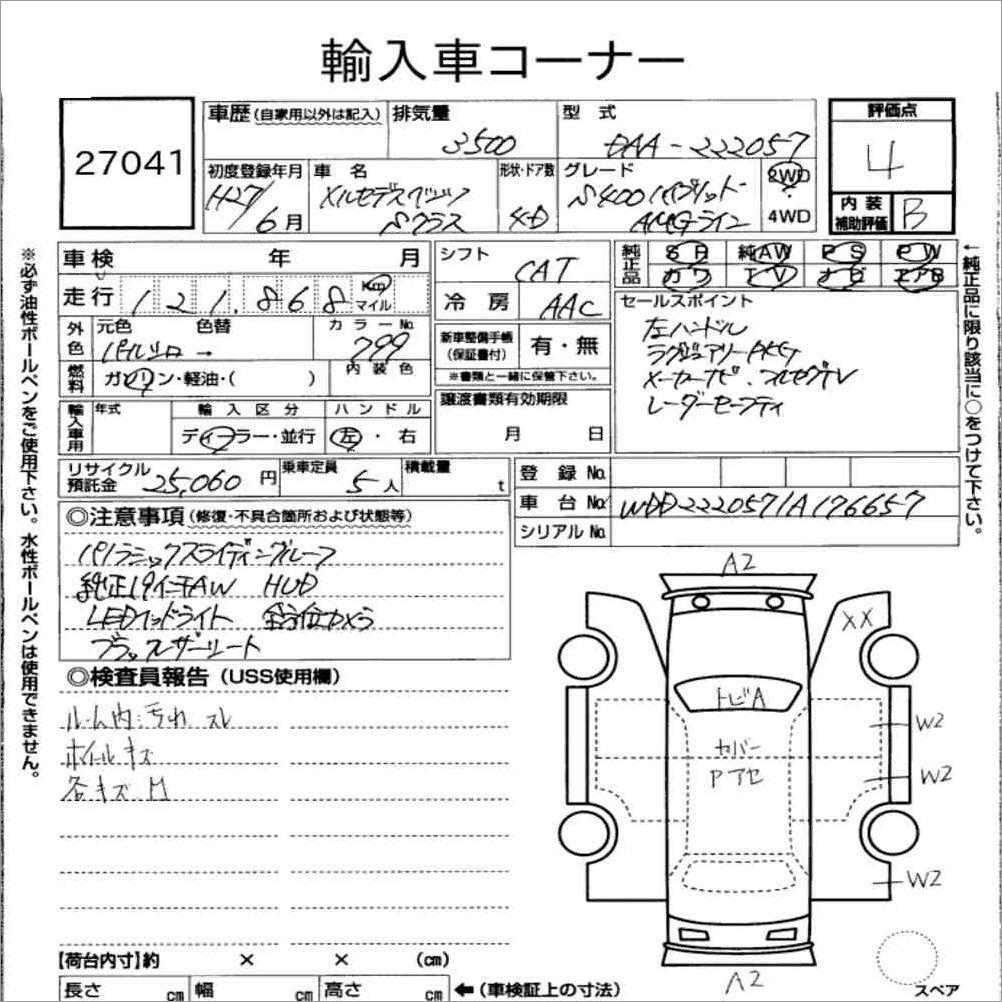 輸入車コーナー
27041
車歴(自家用以外は記入)
排気量
3500
型式
DAA-222057
評価点
4
初度登録年月
H27/6月
車名
メルセデスベンツ
Sクラス
形状・ドア数
4D
グレード
S400ハイブリッド
AMGライン
2WD
4WD
内装
補助評価
B
車検 年 月
走行 121,868 Km
マイル
シフト
CAT
冷房
AAC
純正品
SR 純AW PS PW
カワ TV ナビ エアB
外色
元色 色替
カラーNo.
799
内装色
燃料
ガソリン・軽油・( )
新車整備手帳
(保証書付)
有・無
※書類と一緒に保管下さい。
セールスポイント
左ハンドル
ラグジュアリーPKG
メーカーナビ・フルセグTV
レーダーセーフティ
輸入車用
年式
輸入区分
ハンドル
ディーラー・並行
左・右
譲渡書類有効期限
月 日
リサイクル
預託金 25,060円
乗車定員
5人
積載量
t
登録No.
車台No. WDD2220571A176657
シリアルNo.
◎注意事項(修復・不具合箇所および状態等)
パノラミックスライディングルーフ
純正19インチAW HUD
LEDヘッドライト 全方位カメラ
ブラックレザーシート
◎検査員報告(USS使用欄)
ルーム内汚れ スレ
ホイールキズ
各キズ凹
A2
XX
トビA
カバー
Pアセ
W2
W2
W2
A2
スペア
【荷台内寸】約 × × (cm)
長さ cm 幅 cm 高さ cm ←(車検証上の寸法)
※必ず油性ボールペンをご使用下さい。水性ボールペンは使用できません。
←純正品に限り該当に○をつけて下さい。